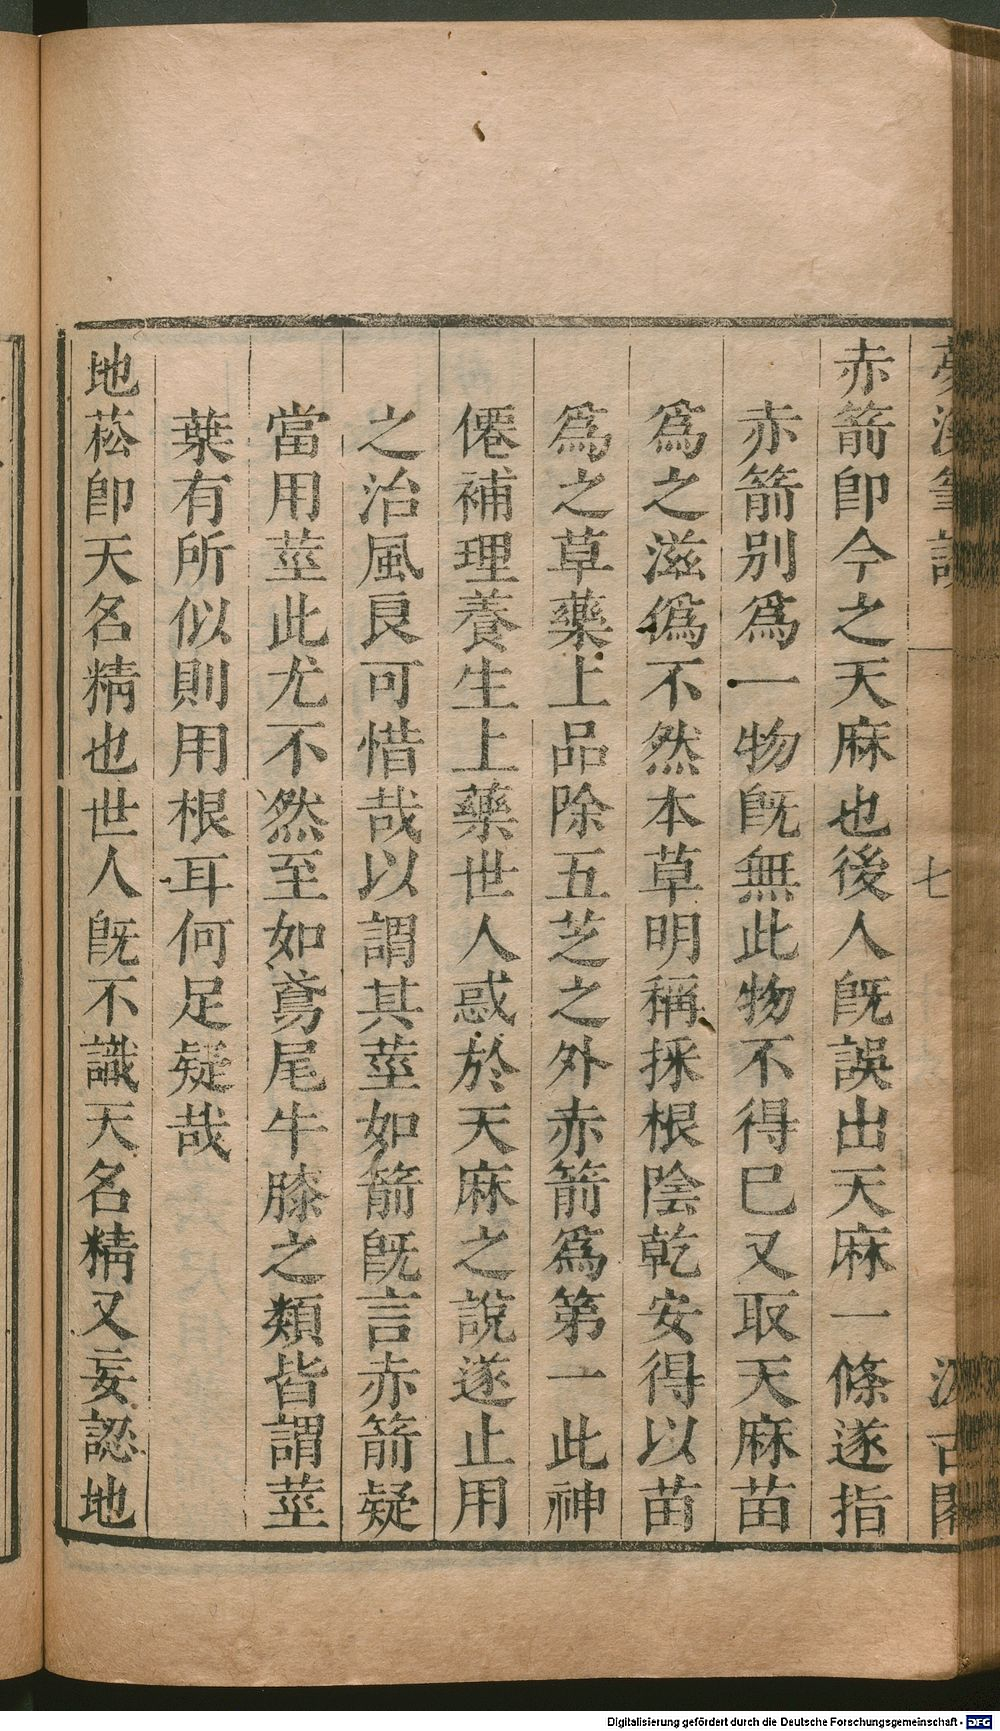 赤箭卽今之天麻也後人旣誤出天麻一條遂指
赤箭別爲一物旣無此物不得已又取天麻苗
爲之滋僞不然本草明稱採根陰乾安得以苗
爲之草藥上品除五芝之外赤箭爲第一此神
僊補理養生上藥世人惑於天麻之說遂止用
之治風良可惜哉以謂其莖如箭旣言赤箭疑
當用莖此尤不然至如鳶尾牛膝之類皆謂莖
葉有所似則用根耳何足疑哉
地菘卽天名精也世人旣不識天名精又妄認地
七
Digitalisierung gefördert durch die Deutsche Forschungsgemeinschaft - DFG